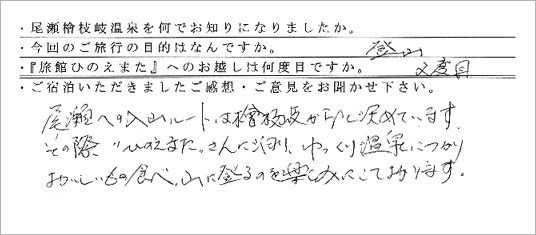 ・尾瀬檜枝岐温泉を何でお知りになりましたか。
・今回のご旅行の目的はなんですか。 登山
・『旅館ひのえまた』へのお越しは何度目ですか。 2度目
・ご宿泊いただきましたご感想・ご意見をお聞かせ下さい。
尾瀬への入山ルートは檜枝岐からと決めています。
その際 "ひのえまた"さんに泊り、ゆっくり温泉につかり
おいしいもの食べ、山に登るのを楽しみにしております。